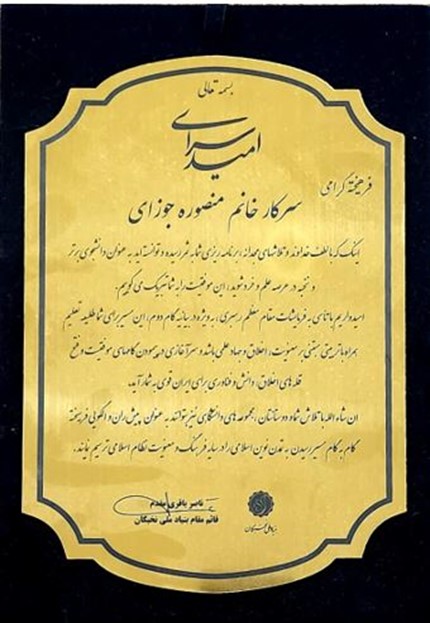 بسمه تعالی
امید سرای
فرهیخته گرامی
سرکار خانم منصوره جوزای
اینک که با لطف خداوند و تلاشهای مجدانه، برنامه ریزی شما به ثمر رسیده و توانسته اید به عنوان دانشجوی برتر
و نخبه در عرصه علم و خرد شوید، این موفقیت را به شما تبریک می گوییم.
امیدواریم با تأسی به فرمایشات مقام معظم رهبری، به ویژه در بیانیه گام دوم، این مسیر برای شما طلیعه تعلیم
همراه با تربیتی مبتنی بر معنویت، اخلاق و جهاد علمی باشد و سرآغازی در پیمودن گامهای موفقیت و فتح
قله های اخلاق، دانش و فناوری برای ایران قوی به شمار آید.
ان شاء الله با تلاش شما و دوستانتان، مجموعه های دانشگاهی نیز بتوانند به عنوان پیش ران و الگویی فرهیخته
گام به گام مسیر رسیدن به تمدن نوین اسلامی را در سایه فرهنگ و معنویت نظام اسلامی ترسیم نمایند.
ناصر باقری مقدم
قائم مقام بنیاد ملی نخبگان
بنیاد ملی نخبگان